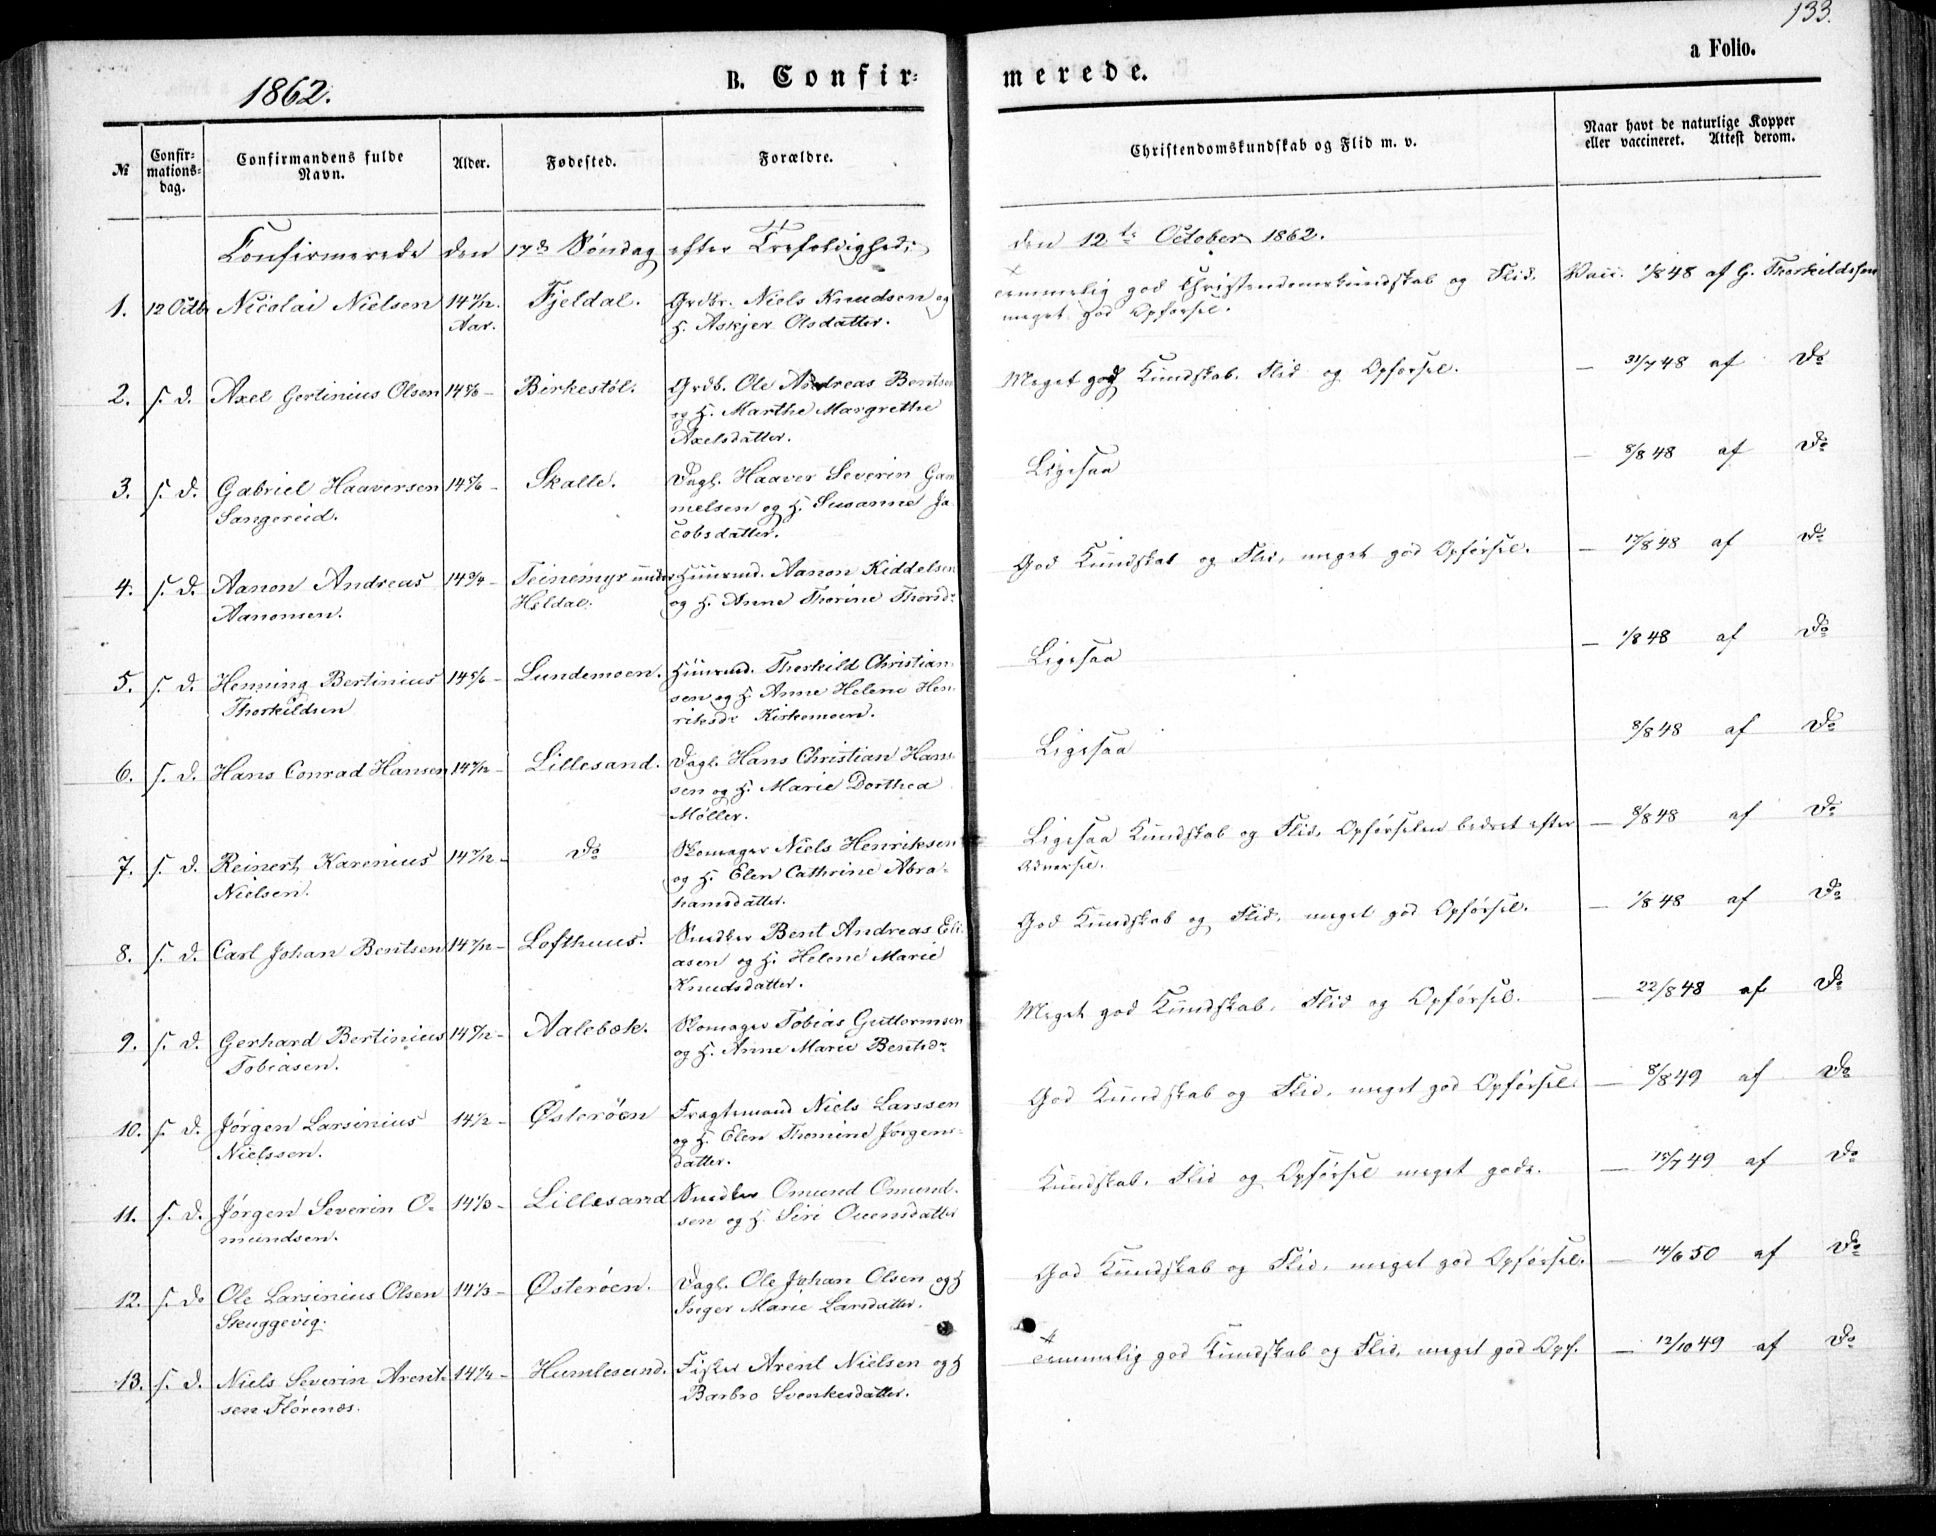 133.
a Folio.
1862.
B. Confir-
merede.
№
Confir-
mations-
dag.
Confirmandens fulde
Navn.
Alder.
Fødested.
Forældre.
Christendomskundskab og Flid m. v.
Naar havt de naturlige Kopper
eller vaccineret. Attest derom.
Confirmerede den 17de Søndag efter Trefoldighed:
den 12te October 1862.
1. 12 Octb. Nicolai Nielsen 14 7/12 Aar. Fjeldal. Grdbr. Niels Knudsen og
H. Askjer Olsdatter.
Temmelig god Christendomskundskab og Flid,
meget god Opførsel.
Vacc. 1/8 48 af G. Thorkildsen
2. s. D. Axel Gertinius Olsen 14 5/6 - Birkestøl. Grdb. Ole Andreas Bentsen
og H. Marthe Margrethe
Axelsdatter.
Meget god Kundskab, Flid og Opførsel. — 31/7 48 af Do
3. s. D. Gabriel Haaversen
Sangereid.
14 5/6 - Skalle. Dagl. Haaver Severin Gam
melsen og H. Susanne Ja-
cobsdatter.
Ligesaa — 8/8 48 af Do
4. s. D. Aanon Andreas
Aanonsen.
14 3/4 - Teinemyr under
Heldal.
Huusmd. Aanon Kiddelsen
og H. Anne Thorine Thorsdr
God Kundskab og Flid, meget god Opførsel. — 17/8 48 af Do
5. s. D. Henning Bertinius
Thorkildsen
14 5/6 - Lundemoen. Huusmd. Thorkild Christian-
sen og H. Anne Helene Hen-
riksdr Kirkemoen.
Ligesaa — 1/8 48 af Do
6. s. D. Hans Conrad Hansen 14 7/12 - Lillesand. Dagl. Hans Christian Han-
sen og H. Marie Dorthea
Møller.
Ligesaa 8/8 48 af Do
7. s. D. Reinert Karenius
Nielsen.
14 7/12 - Do Skomager Niels Henriksen
og H. Elen Cathrine Abra-
hamsdatter.
Ligesaa Kundskab og Flid, Opførselen bedret efter
Advarsel.
— 8/8 48 af Do
8. s. D. Carl Johan Bentsen 14 7/12 - Lofthuus. Snedker Bent Andreas Eli-
asen og H. Helene Marie
Knudsdatter.
God Kundskab og Flid, meget god Opførsel. — 1/8 48 af Do
9. s. D. Gerhard Bertinius
Tobiasen.
14 7/12 - Aalebæk. Skomager Tobias Guttormsen
og H. Anne Marie Bentsdr
Meget god Kundskab, Flid og Opførsel. — 22/8 48 af Do
10. s. D. Jørgen Larsinius
Nielssen.
14 1/2 - Østerøen Fragtemand Niels Larssen
og H. Elen Thomine Jørgens-
datter.
God Kundskab og Flid, meget god Opførsel. — 8/8 49 af Do
11. s. D. Jørgen Severin O-
mundsen.
14 1/3 - Lillesand Snedker Omund Omund-
sen og H. Siri Ouensdatter
Kundskab, Flid og Opførsel meget gode. — 18/7 49 af Do
12. s. Do Ole Larsinius Olsen
Skuggevig.
14 1/3 - Østerøen. Dagl. Ole Johan Olsen og H
Inger Marie Larsdatter.
God Kundskab og Flid, meget god Opførsel. — 14/6 50 af Do
13. s. D. Niels Severin Arent-
sen Flørenæs.
14 1/4 - Humlesund. Fisker Arent Nielsen og H
Barbro Svenkesdatter.
Temmelig god Kundskab og Flid, meget god Opf. — 12/10 49 af Do